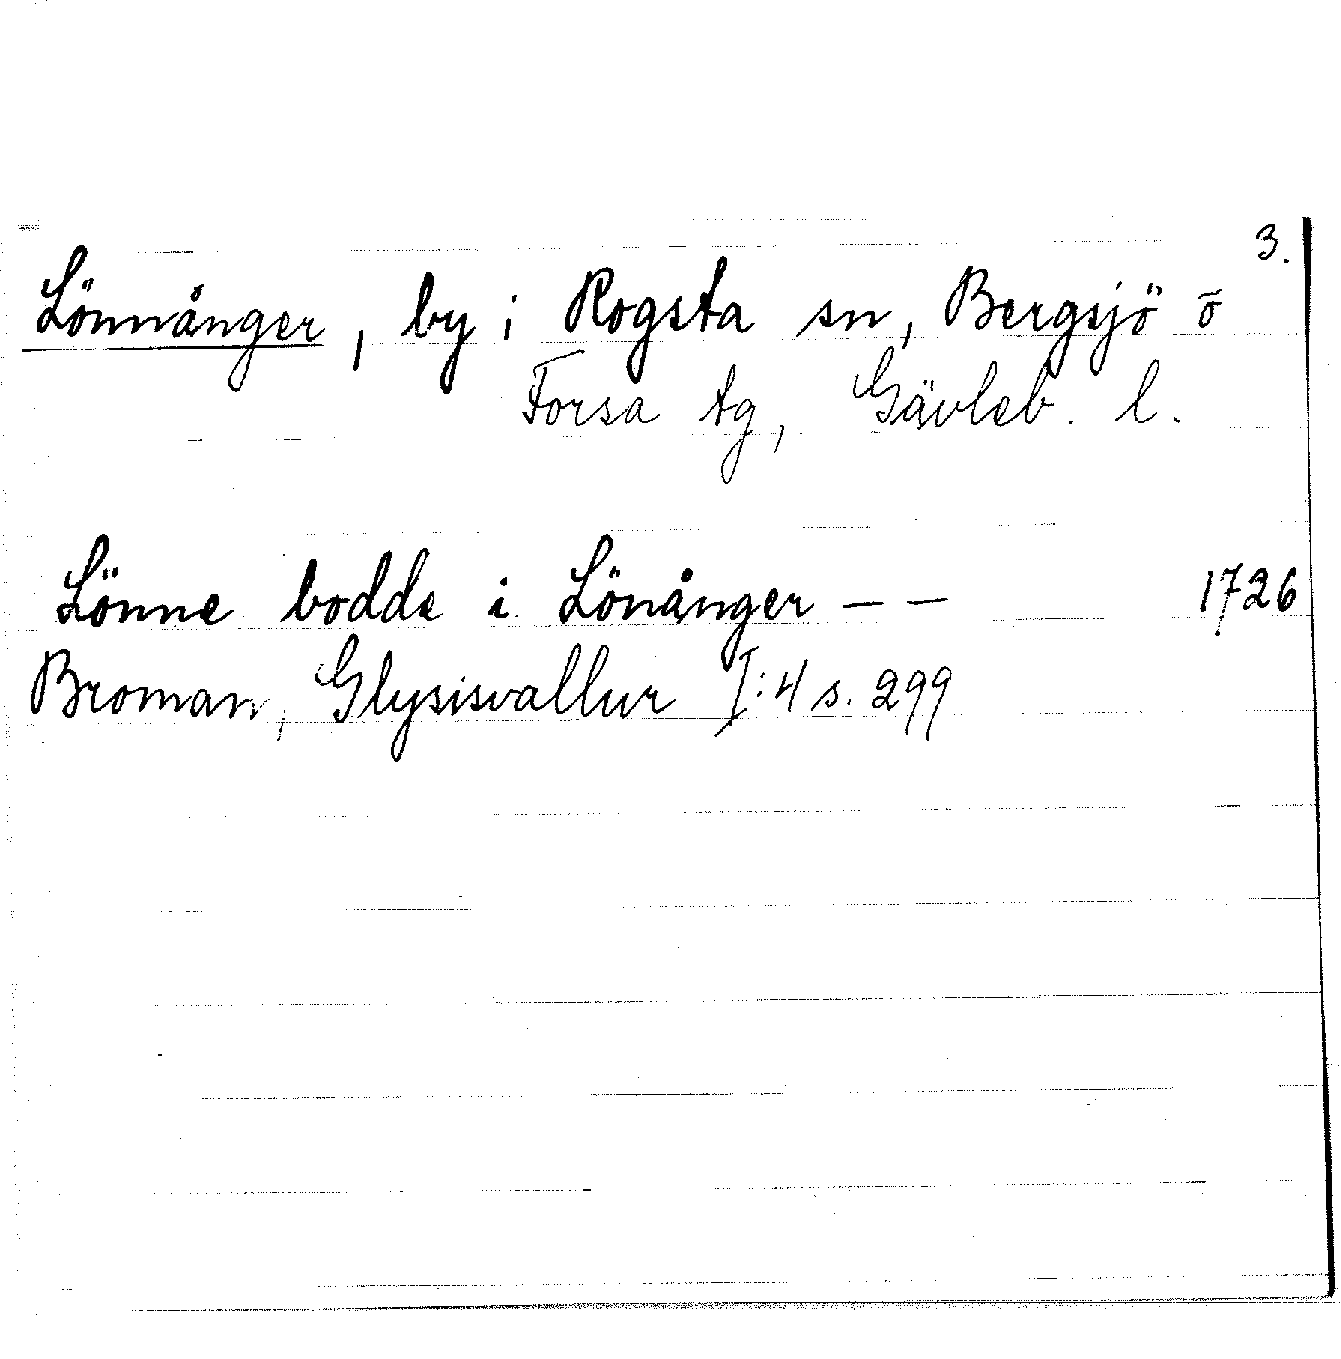 3.
Lönnånger, by i Rogsta sn, Bergsjö o
Forsa tg, Gävleb. l.
Lönne bodde i Lönånger – – 1726
Broman, Glysisvallur I:4 s. 299